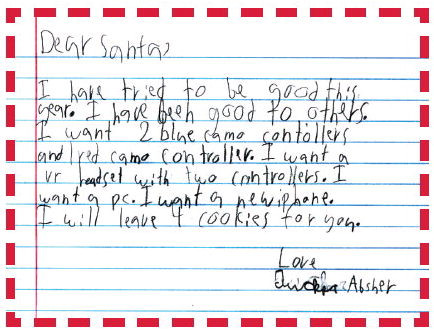 Dear Santa,
I have tried to be good this
year. I have been good to others.
I want 2 blue camo contollers
and 1 red camo controller. I want a
vr headset with two controllers. I
want a pc. I want a new iphone.
I will leave 4 cookies for you.
Love
Absher